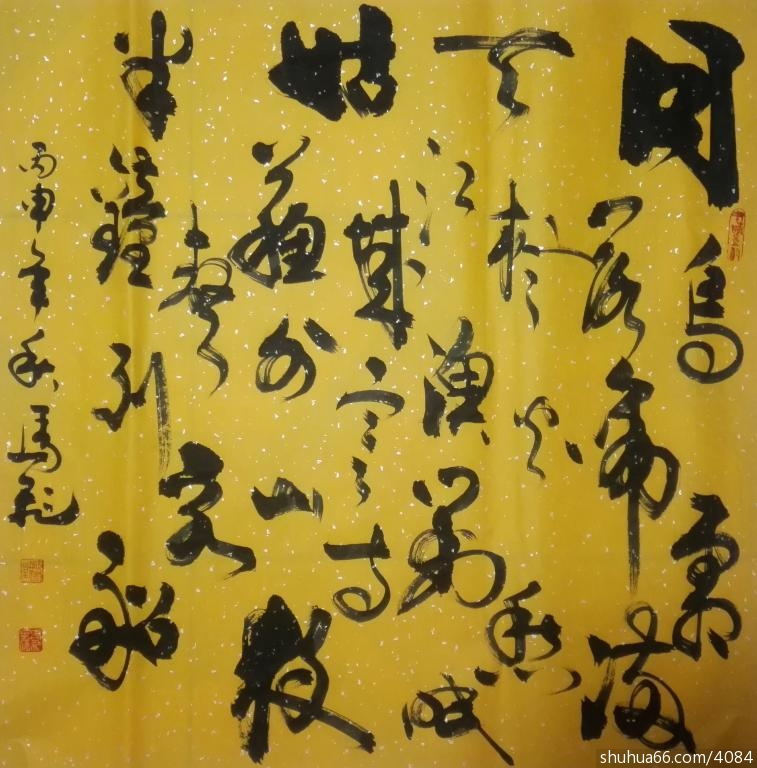 月落烏啼霜滿
天江楓漁火對愁眠
姑蘇城外寒山寺夜
半鐘聲到客船
丙申年秋馬
shuhua66.com/4084